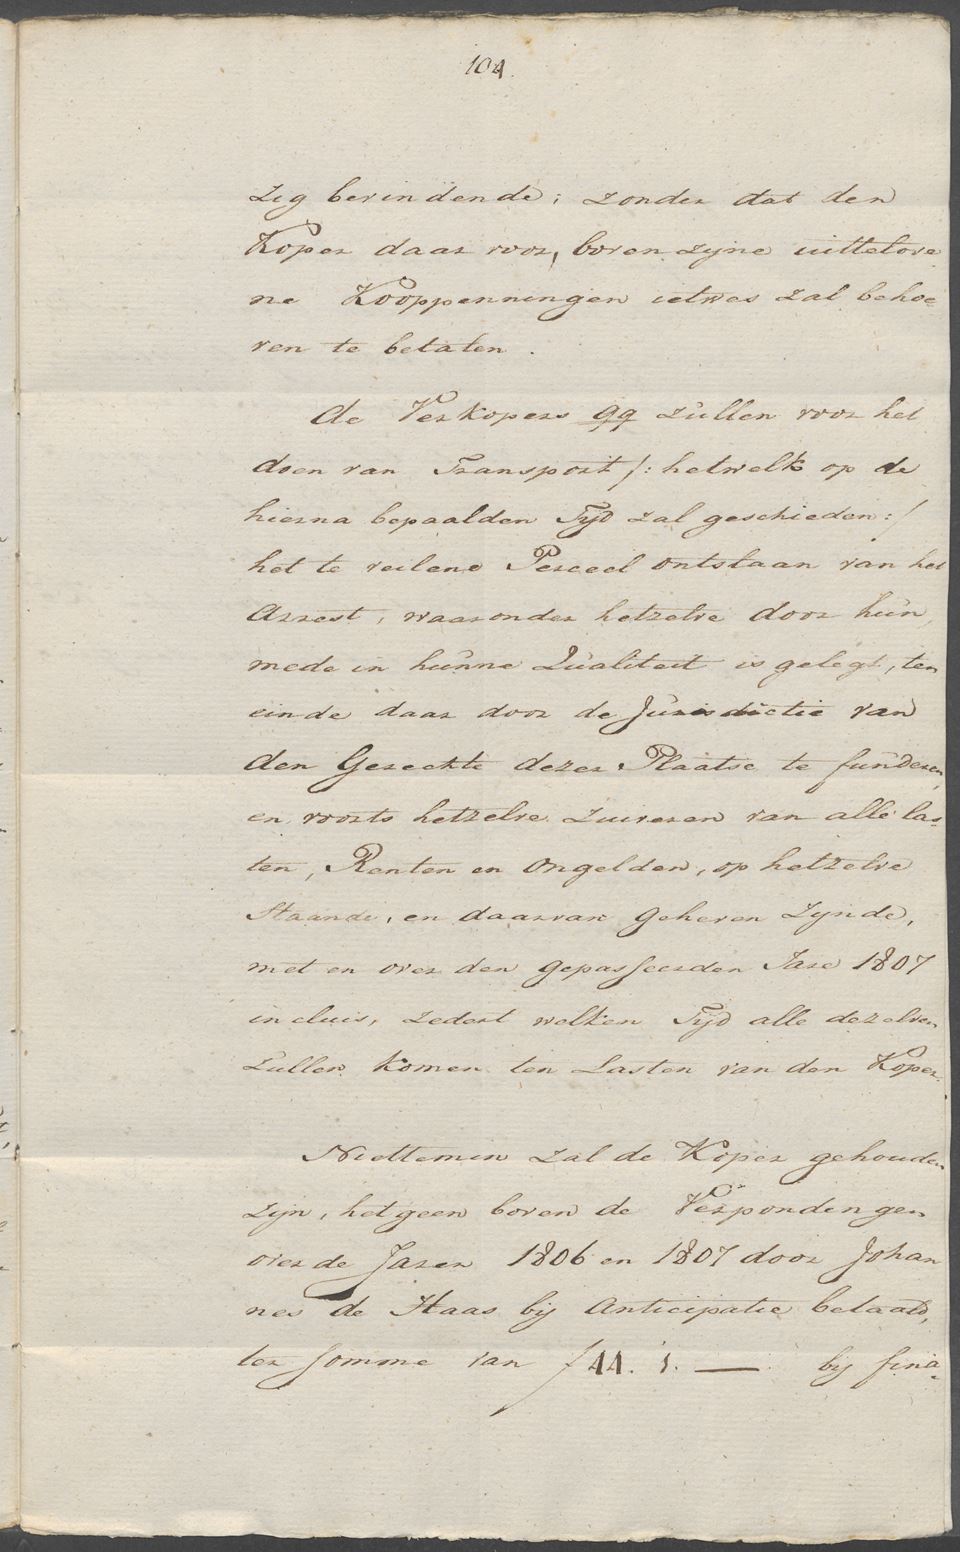 104.
zig bevindende; zonder dat den
Koper daar voor, boven zyne uittelove
ne Kooppenningen ietwes zal behoe-
ven te betalen.
de Verkopers qq zullen voor het
doen van Transport /: hetwelk op de
hierna bepaalden Tyd zal geschieden :/
het te veilene Perceel ontslaan van het
Arrest, waaronder hetzelve door hun,
mede in hunne Qualiteit is gelegt, ten
einde daar door de Jurisdictie van
den Gerechte dezer Plaatse te funderen,
en voorts hetzelve zuiveren van alle las-
ten, Renten en Ongelden, op hetzelve
Staande, en daarvan geheven zynde,
met en over den gepasseerden Jare 1807
incluis, zedert welken Tyd alle dezelven
zullen komen ten Lasten van den Koper.
Niettemin zal de Koper gehouden
zyn, hetgeen boven de Verpondengen
over de Jaren 1806 en 1807 door Johan
nes de Haas bij Anticipatie betaald,
ter somme van f 44. 1. — bij fina-